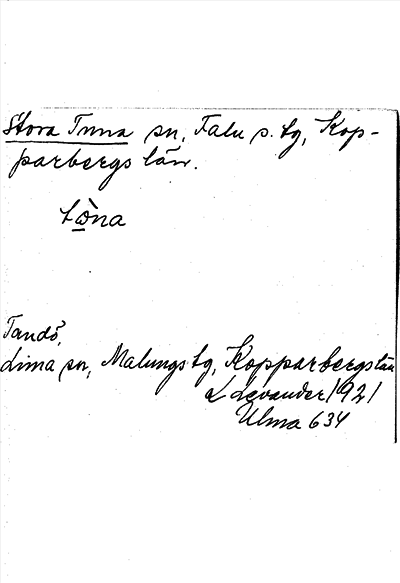 Stora Tuna sn, Falu s. tg, Kop-
parbergs län.
tὼ̠na
Tandö,
Lima sn, Malungs tg, Kopparbergs län
L Levander 1921
Ulma 634